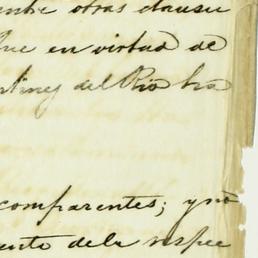 entre otras clausu
que en virtud de
rtinez del Rio ha
comparentes; y no
ente dela respec